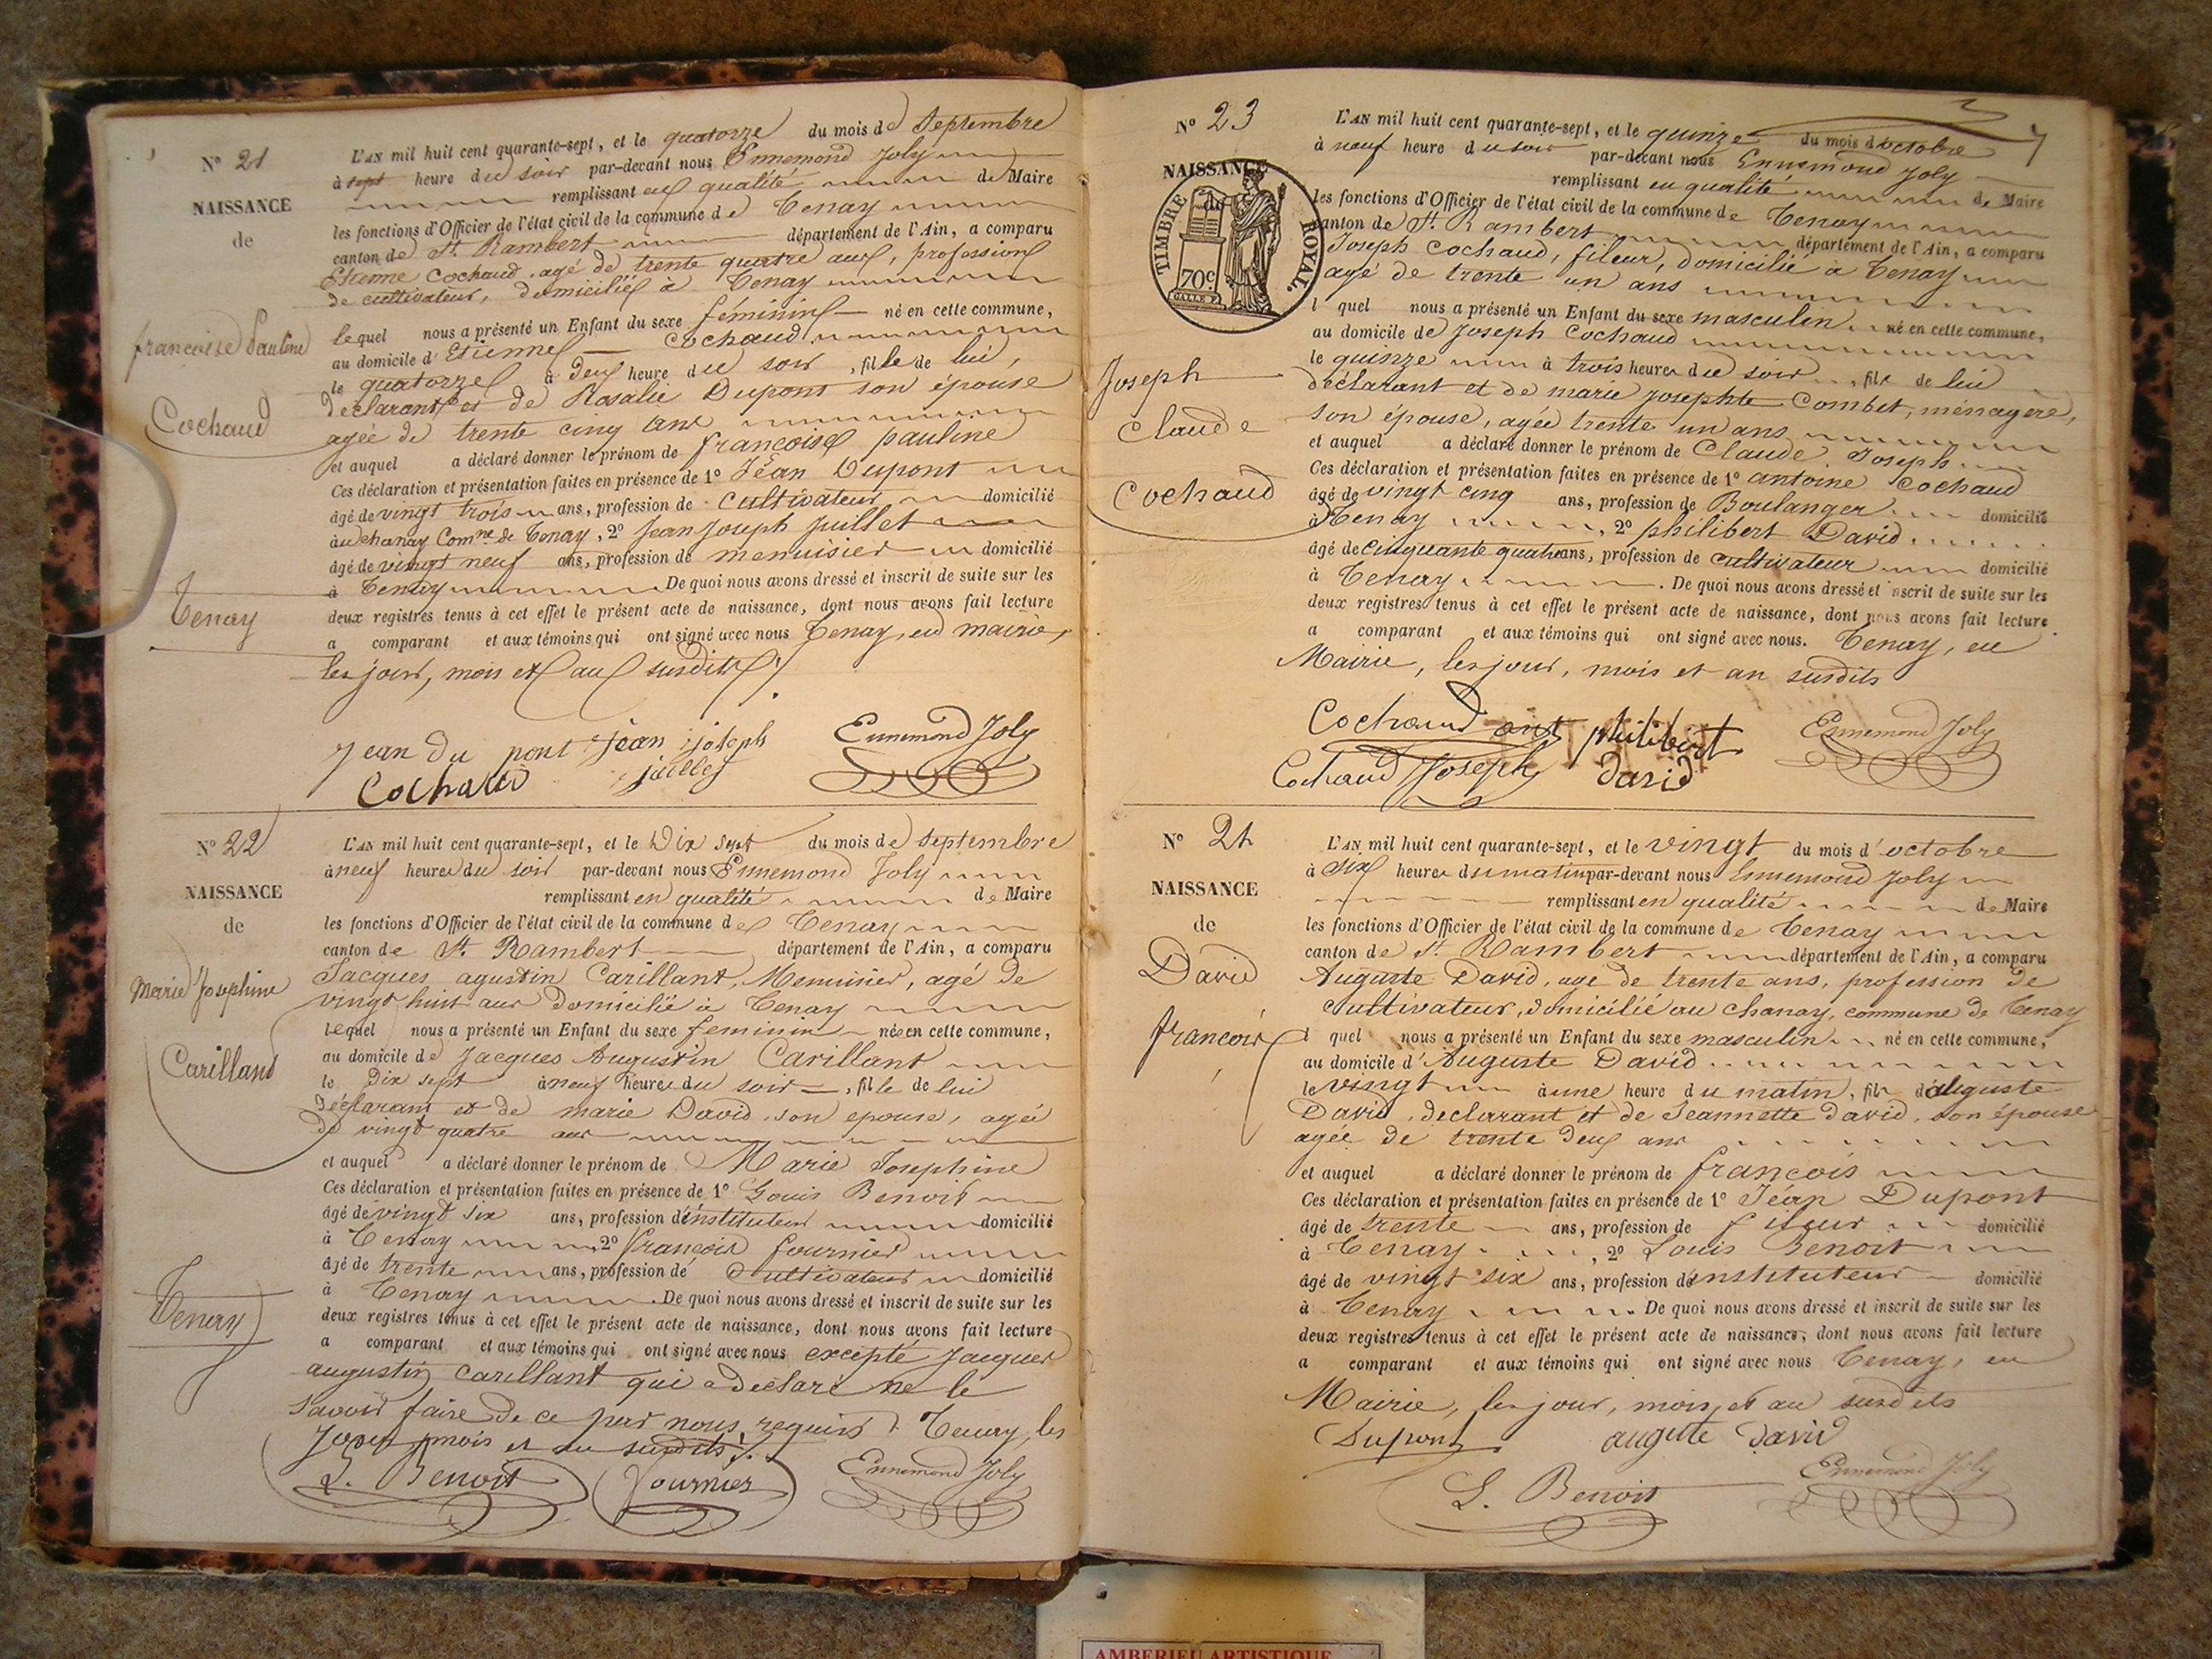 N° 21
NAISSANCE
de
francoise Pauline
Cochaud
Tenay
L'AN mil huit cent quarante-sept, et le quatorze du mois de Septembre
à sept heure du soir par-devant nous Ennemond Joly
remplissant en qualité de Maire
les fonctions d'Officier de l'état civil de la commune de Tenay
canton de St. Rambert département de l'Ain, a comparu
Etienne Cochaud, agé de trente quatre ans, profession
de cultivateur, domicilié à Tenay
lequel nous a présenté un Enfant du sexe féminin né en cette commune,
au domicile d'Etienne Cochaud
le quatorze à deux heure du soir, fille de lui,
déclarant et de Rosalie Dupont son épouse
agée de trente cinq ans
et auquel a déclaré donner le prénom de françoise pauline
Ces déclaration et présentation faites en présence de 1° Jéan Dupont
âgé de vingt trois ans, profession de cultivateur domicilié
au chanay Comne de Tenay, 2° Jean Joseph Juillet
âgé de vingt neuf ans, profession de menuisier domicilié
à Tenay De quoi nous avons dressé et inscrit de suite sur les
deux registres tenus à cet effet le présent acte de naissance, dont nous avons fait lecture
a comparant et aux témoins qui ont signé avec nous Tenay, en mairie,
les jour, mois et an susdits
Jean du pont jean joseph Ennemond Joly
Cochaud
N° 22
NAISSANCE
de
Marie Josephine
Carilland
Tenay
L'AN mil huit cent quarante-sept, et le Dix sept du mois de Septembre
à neuf heures du soir par-devant nous Ennemond Joly
remplissant en qualité de Maire
les fonctions d'Officier de l'état civil de la commune de Tenay
canton de St. Rambert département de l'Ain, a comparu
Jacques agustin Carillant, Menuisier, agé de
vingt huit ans Domicilié à Tenay
lequel nous a présenté un Enfant du sexe feminin née en cette commune,
au domicile de Jacques Augustin Carillant
le Dix sept à neuf heures du soir, fille de lui
Déclarant et de marie David son epouse, agée
de vingt quatre ans
et auquel a déclaré donner le prénom de Marie Josephine
Ces déclaration et présentation faites en présence de 1° Louis Benoit
âgé de vingt six ans, profession d'instituteur domicilié
à Tenay 2° François fournier
âgé de trente ans, profession de Cultivateur domicilié
à Tenay De quoi nous avons dressé et inscrit de suite sur les
deux registres tenus à cet effet le présent acte de naissance, dont nous avons fait lecture
a comparant et aux témoins qui ont signé avec nous excepté Jacques
augustin Carillant qui a déclaré ne le
savoir faire de ce par nous requis Tenay, les
jour, mois et an susdits
L. Benoit fournier Ennemond Joly
N° 23
NAISSANCE
de
TIMBRE ROYAL.
70c
Joseph
Claude
Cochaud
7
L'AN mil huit cent quarante-sept, et le quinze du mois d'octobre
à neuf heure du soir par-devant nous Ennemond Joly
remplissant en qualité de Maire
les fonctions d'Officier de l'état civil de la commune de Tenay
canton de St. Rambert département de l'Ain, a comparu
Joseph Cochaud, fileur, domicilié à Tenay
agé de trente un ans
l quel nous a présenté un Enfant du sexe masculin né en cette commune,
au domicile de Joseph Cochaud
le quinze à trois heures du soir, fils de lui
déclarant et de marie josephte Combet, ménagère,
son épouse, agée trente un ans
et auquel a déclaré donner le prénom de Claude Joseph
Ces déclaration et présentation faites en présence de 1° antoine Cochaud
âgé de vingt cinq ans, profession de Boulanger domicilié
à Tenay, 2° philibert David
âgé de cinquante quatre ans, profession de cultivateur domicilié
à Tenay. De quoi nous avons dressé et inscrit de suite sur les
deux registres tenus à cet effet le présent acte de naissance, dont nous avons fait lecture
a comparant et aux témoins qui ont signé avec nous. Tenay, en
Mairie, les jour, mois et an susdits
Cochaud ant philibert Ennemond Joly
Cochaud Joseph David
N° 24
NAISSANCE
de
David
francois
L'AN mil huit cent quarante-sept, et le vingt du mois d'octobre
à six heures du matin par-devant nous Ennemond Joly
remplissant en qualité de Maire
les fonctions d'Officier de l'état civil de la commune de Tenay
canton de St. Rambert département de l'Ain, a comparu
Auguste David, age de trente ans, profession de
Cultivateur, domicilié au chanay, commune de Tenay
l quel nous a présenté un Enfant du sexe masculin né en cette commune,
au domicile d'Auguste David
le vingt à une heure du matin, fils d'auguste
David, declarant et de Jeannette david, son épouse
agée de trente deux ans
et auquel a déclaré donner le prénom de françois
Ces déclaration et présentation faites en présence de 1° Jéan Dupont
âgé de trente ans, profession de fileur domicilié
à Tenay, 2° Louis Benoit
âgé de vingt six ans, profession d'instituteur domicilié
à Tenay De quoi nous avons dressé et inscrit de suite sur les
deux registres tenus à cet effet le présent acte de naissance, dont nous avons fait lecture
a comparant et aux témoins qui ont signé avec nous Tenay, en
Mairie, les jour, mois, et an susdits
Dupont auguste David
L. Benoit Ennemond Joly
AMBERIEU ARTISTIQUE